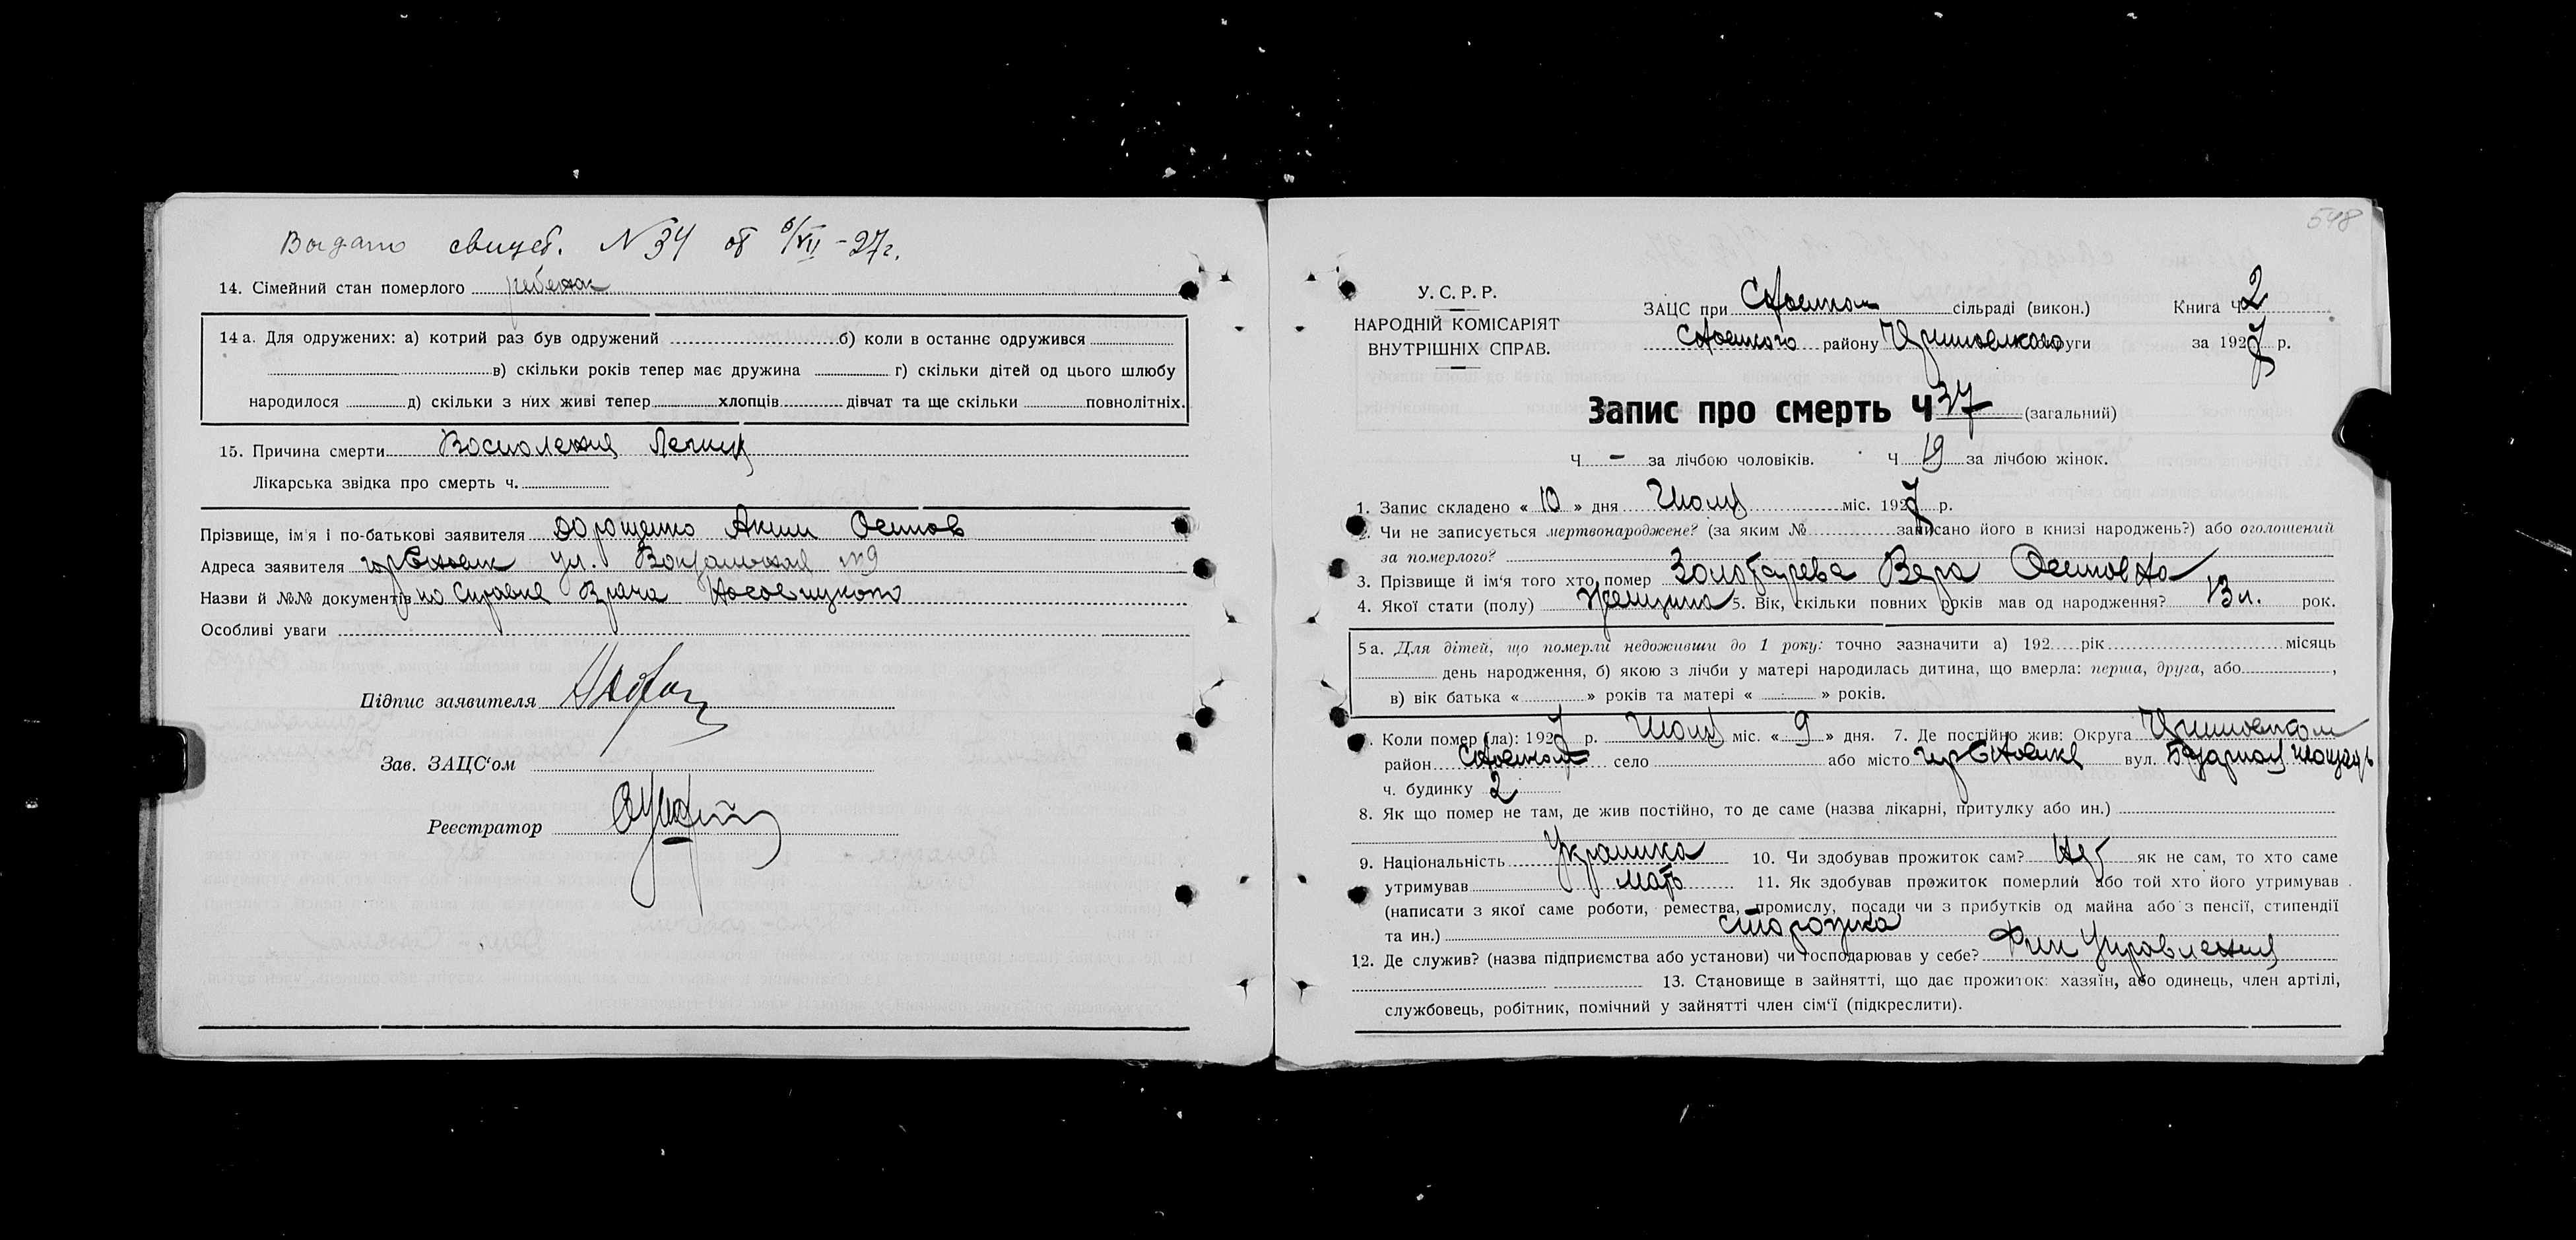 Выдано свидет. N 34 от 6/VII-27г.
14. Сімейний стан померлого ребенок
14а. Для одружених: а) котрий раз був одружений б) коли в останнє одружився
в) скільки років тепер має дружина г) скільки дітей од цього шлюбу
народилося д) скільки з них живі тепер хлопців дівчат та ще скільки повнолітніх.
15. Причина смерти Воспаления Легких
Лікарська звідка про смерть ч.
Прізвище, ім'я і по-батькові заявителя Дорощенко Аким Осипов
Адреса заявителя гор Сновск ул. Вокзальная №9
Назви й №№ документів по Справке Врача Носовицкого
Особливі уваги
Підпис заявителя
Зав. ЗАЦС'ом
Реєстратор
548
У.С.Р.Р.
НАРОДНІЙ КОМІСАРІЯТ
ВНУТРІШНІХ СПРАВ.
ЗАЦС при Сновском сільраді (викон.) Книга Ч 2
Сновского району округи за 1927 р.
Запис про смерть Ч 37 (загальний)
Ч - за лічбою чоловіків. Ч 19 за лічбою жінок.
1. Запис складено « 10 » дня Июля міс. 1927 р.
2. Чи не записується мертвонароджене? (за яким № записано його в книзі народжень?) або оголошений
за померлого?
3. Прізвище й ім'я того хто помер Золотарева Вера Осиповна
4. Якої стати (полу) Женщина 5. Вік, скільки повних років мав од народження? 13 л. рок.
5а. Для дітей, що померли недоживши до 1 року: точно зазначити а) 192 рік місяць
день народження, б) якою з лічби у матері народилась дитина, що вмерла: перша, друга, або ,
в) вік батька « » років та матері « » років.
6. Коли помер (ла): 1927 р. Июля міс. « 9 » дня. 7. Де постійно жив: Округа
район Сновском село або місто гор Сновске вул. Базарная площадь
ч. будинку 2
8. Як що помер не там, де жив постійно, то де саме (назва лікарні, притулку або ин.)
9. Національність Украинка 10. Чи здобував прожиток сам? Нет як не сам, то хто саме
утримував мать 11. Як здобував прожиток померлий або той хто його утримував
(написати з якої саме роботи, ремества, промислу, посади чи з прибутків од майна або з пенсії, стипендії
та ин.) сторожка
12. Де служив? (назва підприємства або установи) чи господарював у себе? Фин Управления
13. Становище в зайнятті, що дає прожиток: хазяїн, або одинець, член артілі,
службовець, робітник, помічний у зайнятті член сім'ї (підкреслити).